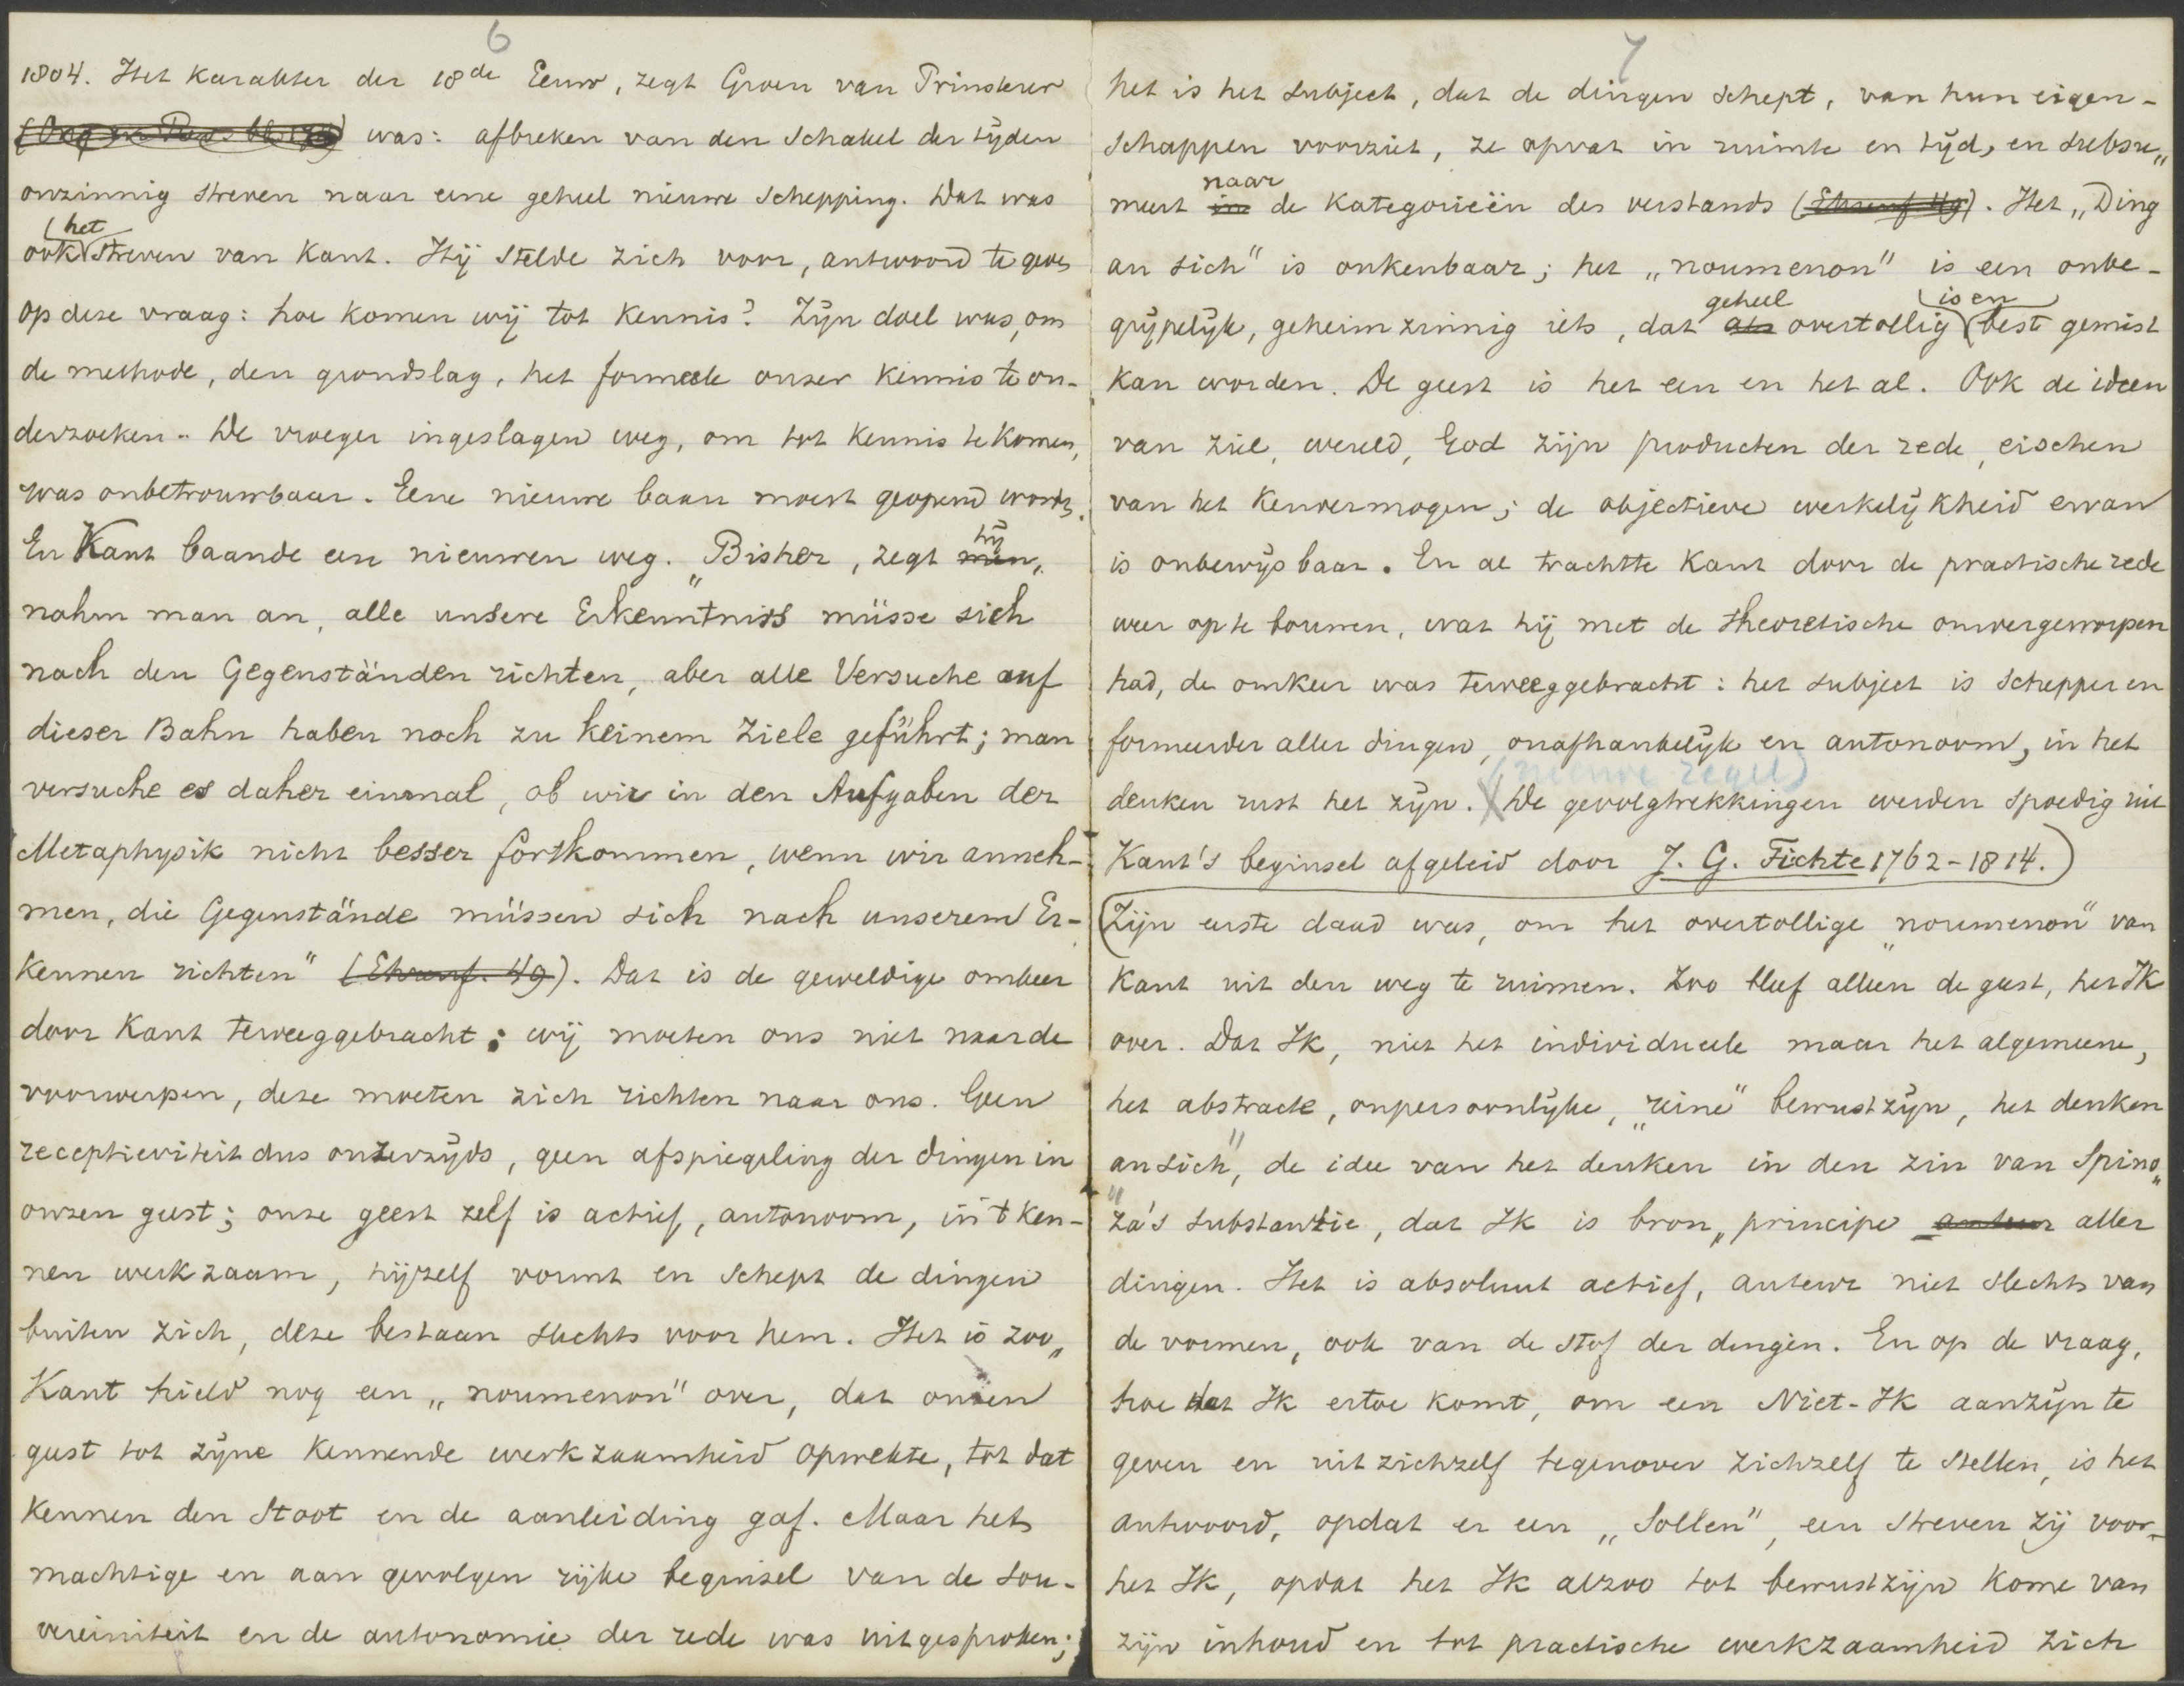 6
1804. Het karakter der 18de Eeuw, zegt Groen van Prinsterer
was: afbreken van den schakel der tijden
onzinnig streven naar eene geheel nieuwe schepping. Dat was
het
ook streven van Kant. Hij stelde zich voor, antwoord te geven
op deze vraag: hoe komen wij tot kennis? Zijn doel was, om
de methode, den grondslag, het formeele onzer kennis te on-
derzoeken. De vroeger ingeslagen weg, om tot kennis te komen,
was onbetrouwbaar. Eene nieuwe baan moest geopend worden.
hij
En Kant baande een nieuwen weg. „Bisher, zegt men,
nahm man an, alle unsere Erkenntniss müsse sich
nach den Gegenständen richten, aber alle Versuche auf
dieser Bahn haben noch zu keinem Ziele geführt; man
versuche es daher einmal, ob wir in den Aufgaben der
Metaphysik nicht besser fortkommen, wenn wir anneh-
men, die Gegenstände müssen sich nach unserem Er-
kennen richten" (Ehrenf. 49). Dat is de geweldige omkeer
door Kant teweeggebracht; wij moeten ons niet naar de
voorwerpen, deze moeten zich richten naar ons. Geen
receptieviteit dus onzerzijds, geen afspiegeling der dingen in
onzen geest; onze geest zelf is actief, autonoom, in 't ken-
nen werkzaam, hijzelf vormt en schept de dingen
buiten zich, deze bestaan slechts voor hem. Het is zoo,
Kant hield nog een „noumenon" over, dat onzen
geest tot zijne kennende werkzaamheid opwekte, tot dat
kennen den stoot en de aanleiding gaf. Maar het
machtige en aan gevolgen rijke beginsel van de sou-
vereiniteit en de autonomie der rede was uitgesproken;
7
het is het subject, dat de dingen schept, van hun eigen-
schappen voorziet, ze opvat in ruimte en tijd, en subsu„
naar
meert in de kategorieën des verstands (Ehrenf 49). Het „Ding
an sich" is onkenbaar; het „noumenon" is een onbe-
geheel is en
grijpelijk, geheimzinnig iets, dat als overtollig best gemist
kan worden. De geest is het een en het al. Ook de ideen
van ziel, wereld, God zijn producten der rede, eischen
van het kenvermogen; de objectieve werkelijkheid ervan
is onbewijsbaar. En al trachtte Kant door de practische rede
weer op te bouwen, wat hij met de theoretische omvergeworpen
had, de omkeer was teweeggebracht: het subject is schepper en
formeerder aller dingen, onafhankelijk en autonoom, in het
(nieuwe regel)
denken rust het zijn. De gevolgtrekkingen werden spoedig uit
Kant's beginsel afgeleid door J. G. Fichte 1762-1814.
Zijn eerste daad was, om het overtollige „noumenon" van
Kant uit den weg te ruimen. Zoo bleef alleen de geest, het Ik
over. Dat Ik, niet het individueele maar het algemeene,
het abstracte, onpersoonlijke, „reine" bewustzijn, het denken
„an sich", de idee van het denken in den zin van Spino„
za's substantie, dat Ik is bron, principe auteur aller
dingen. Het is absoluut actief, auteur niet slechts van
de vormen, ook van de stof der dingen. En op de vraag,
hoe dat Ik ertoe komt, om een Niet-Ik aanzijn te
geven en uit zichzelf tegenover zichzelf te stellen, is het
antwoord, opdat er een „Sollen", een streven zij voor
het Ik, opdat het Ik alzoo tot bewustzijn kome van
zijn inhoud en tot practische werkzaamheid zich